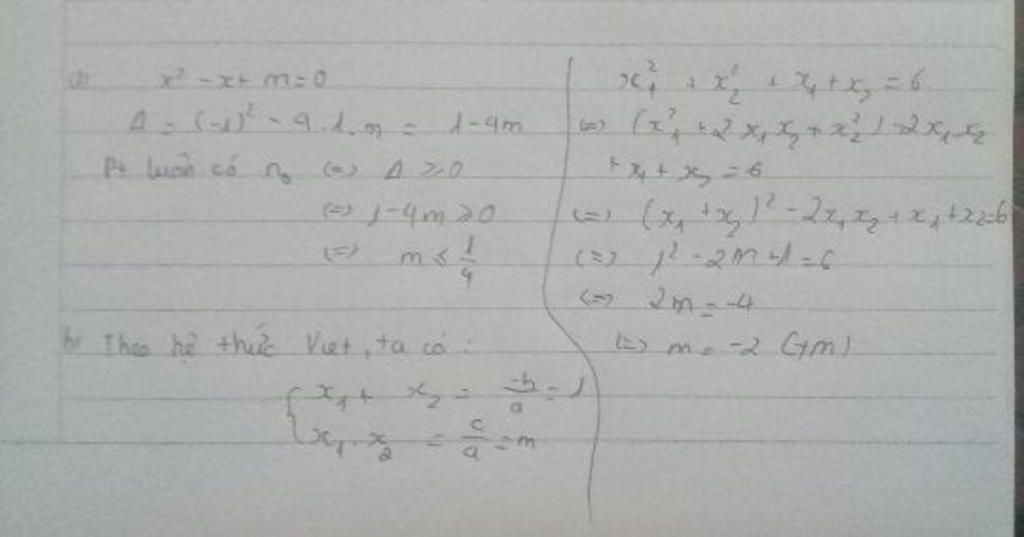 a) x² - x + m = 0
Δ = (-1)² - 4.1.m = 1 - 4m
Pt luôn có n₀ (=) Δ ≥ 0
(=) 1 - 4m ≥ 0
(=) m ≤ 1/4
b) Theo hệ thức Viet, ta có:
{ x₁ + x₂ = -b/a = 1
x₁ . x₂ = c/a = m
x₁² + x₂² + x₁ + x₂ = 6
(=) (x₁² + 2x₁x₂ + x₂²) - 2x₁x₂
+ x₁ + x₂ = 6
(=) (x₁ + x₂)² - 2x₁x₂ + x₁ + x2 = 6
(=) 1² - 2m + 1 = 6
(=) 2m = -4
(=) m = -2 (tm)